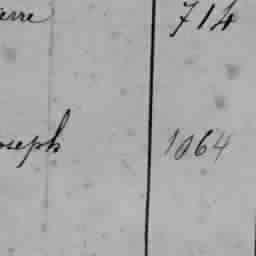 erre 714
oseph 1064